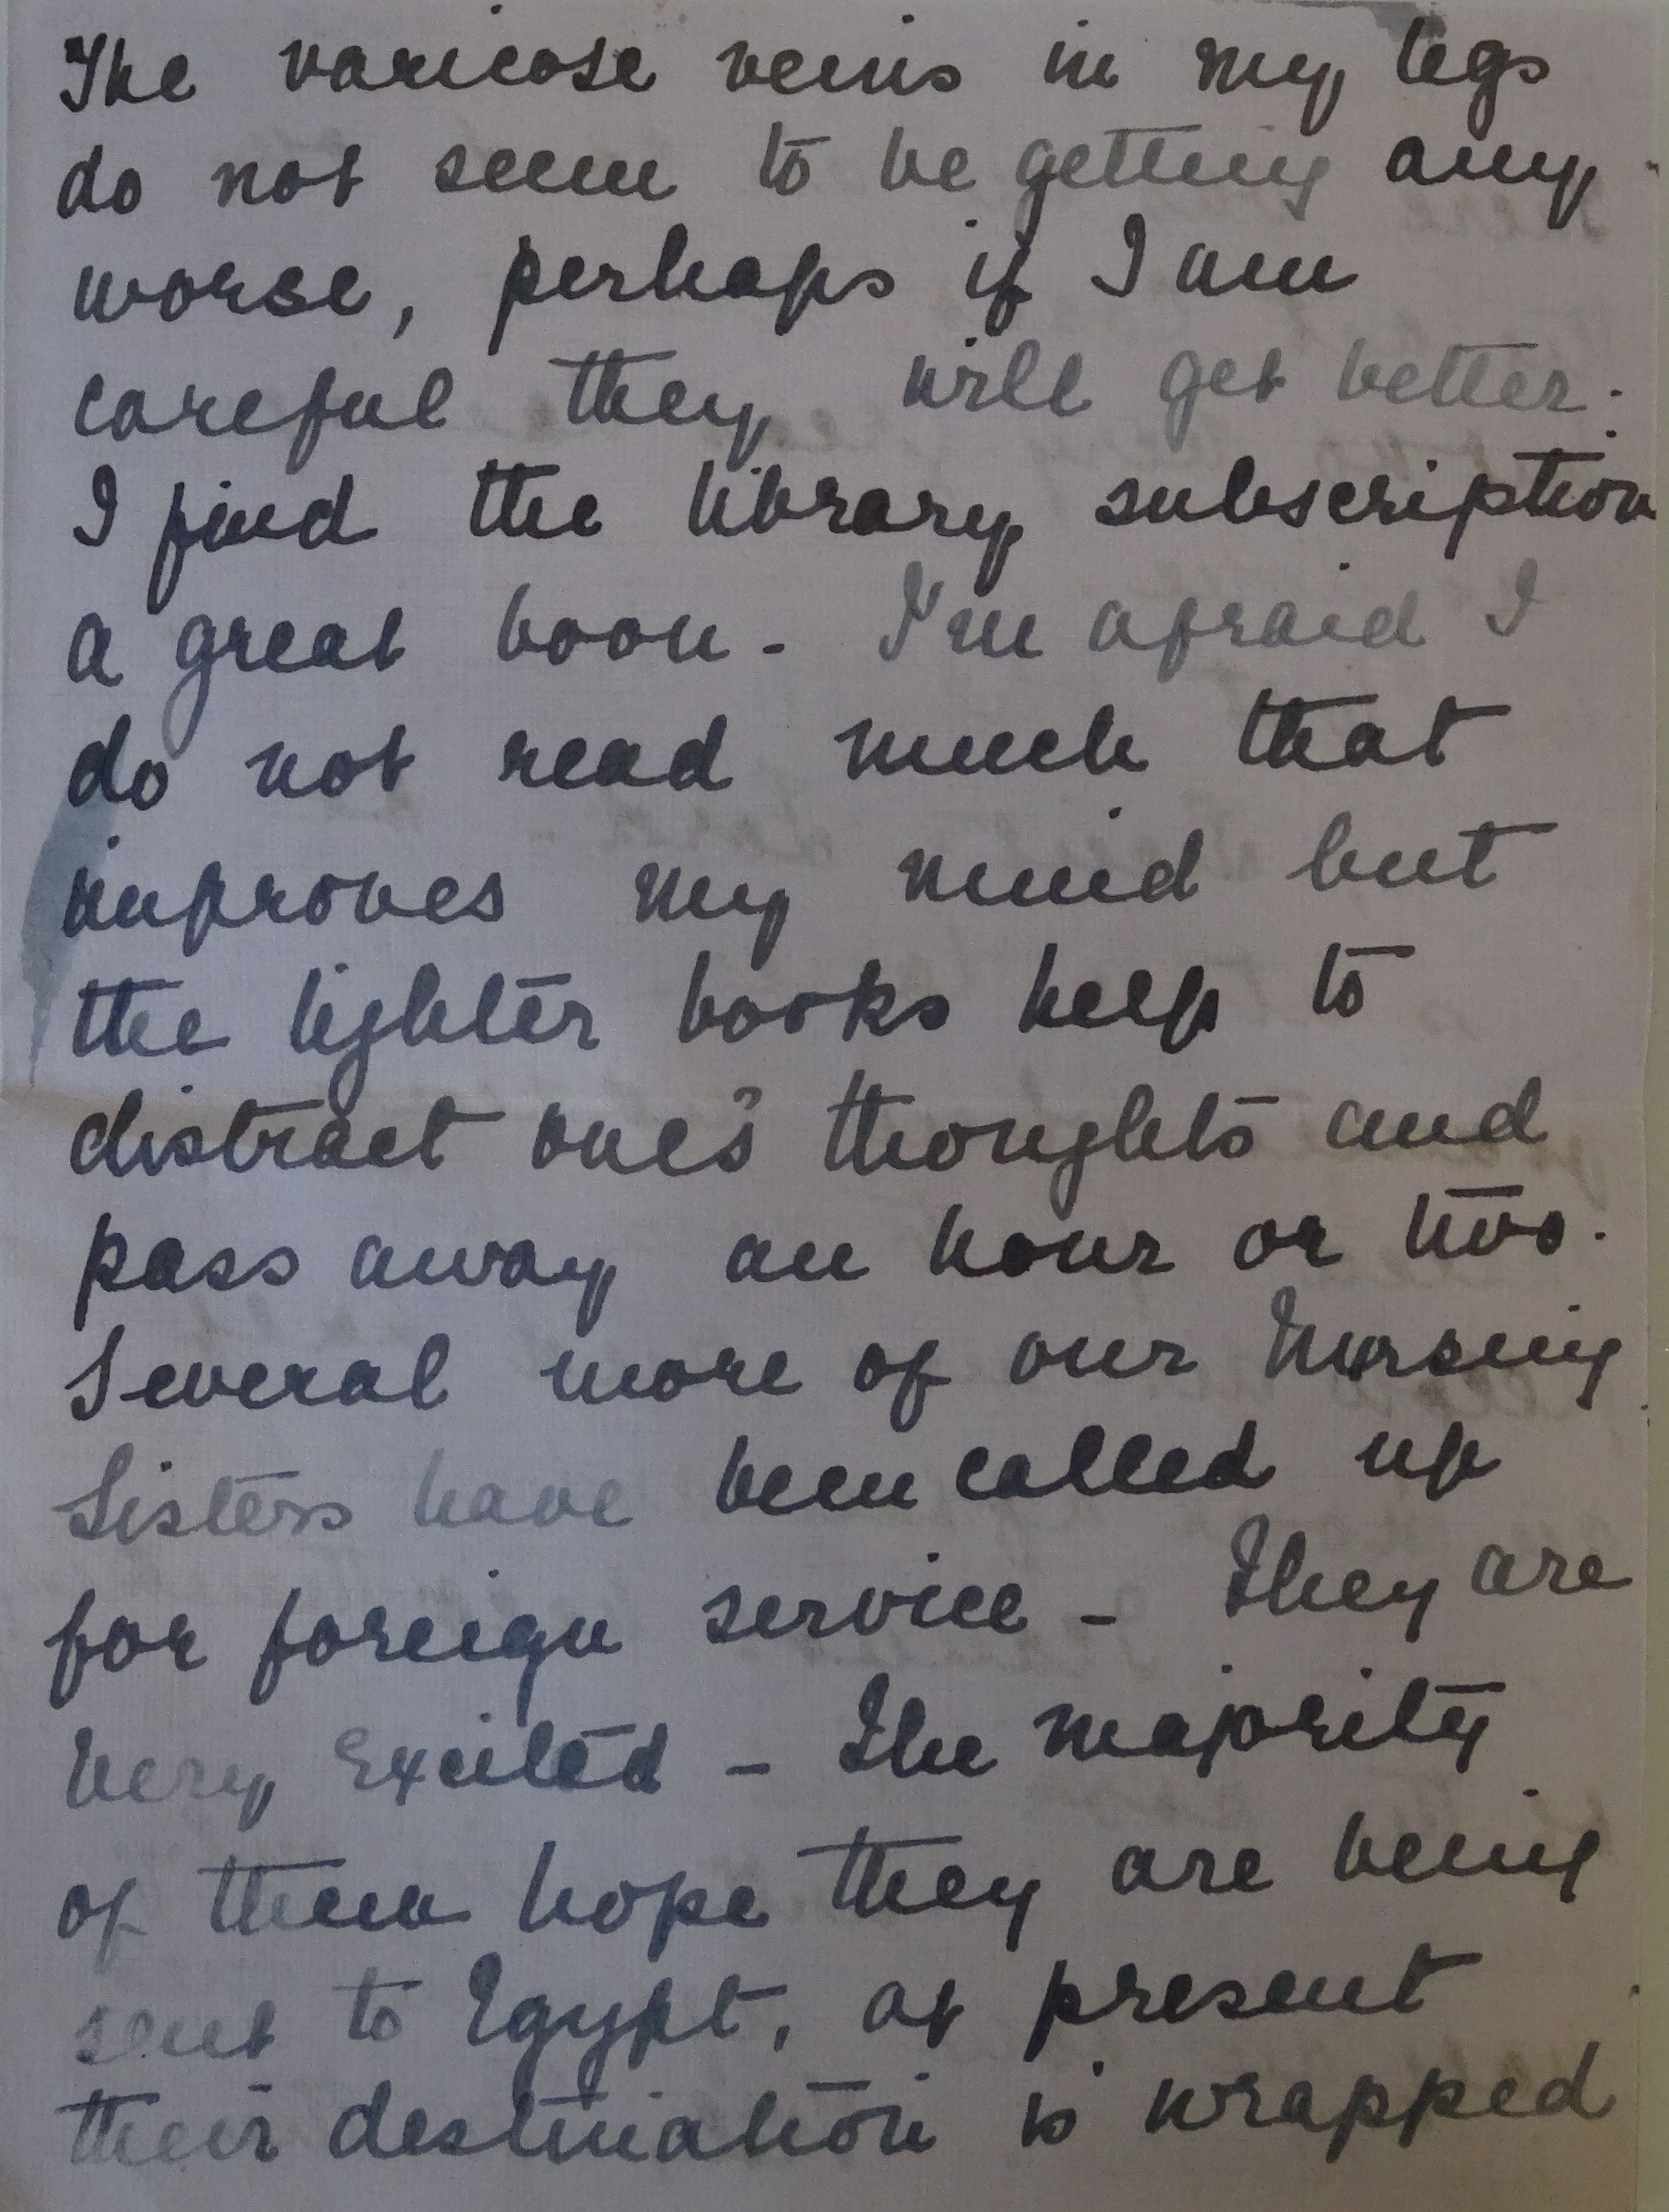 The varicose veins in my legs
do not seem to be getting any
worse, perhaps if I am
careful they will get better.
I find the library subscription
a great boon - I'm afraid I
do not read much that
improves my mind but
the lighter books help to
distract one's thoughts and
pass away an hour or two.
Several more of our Nursing
Sisters have been called up
for foreign service - They are
very excited - The majority
of them hope they are being
sent to Egypt, at present
their destination is wrapped